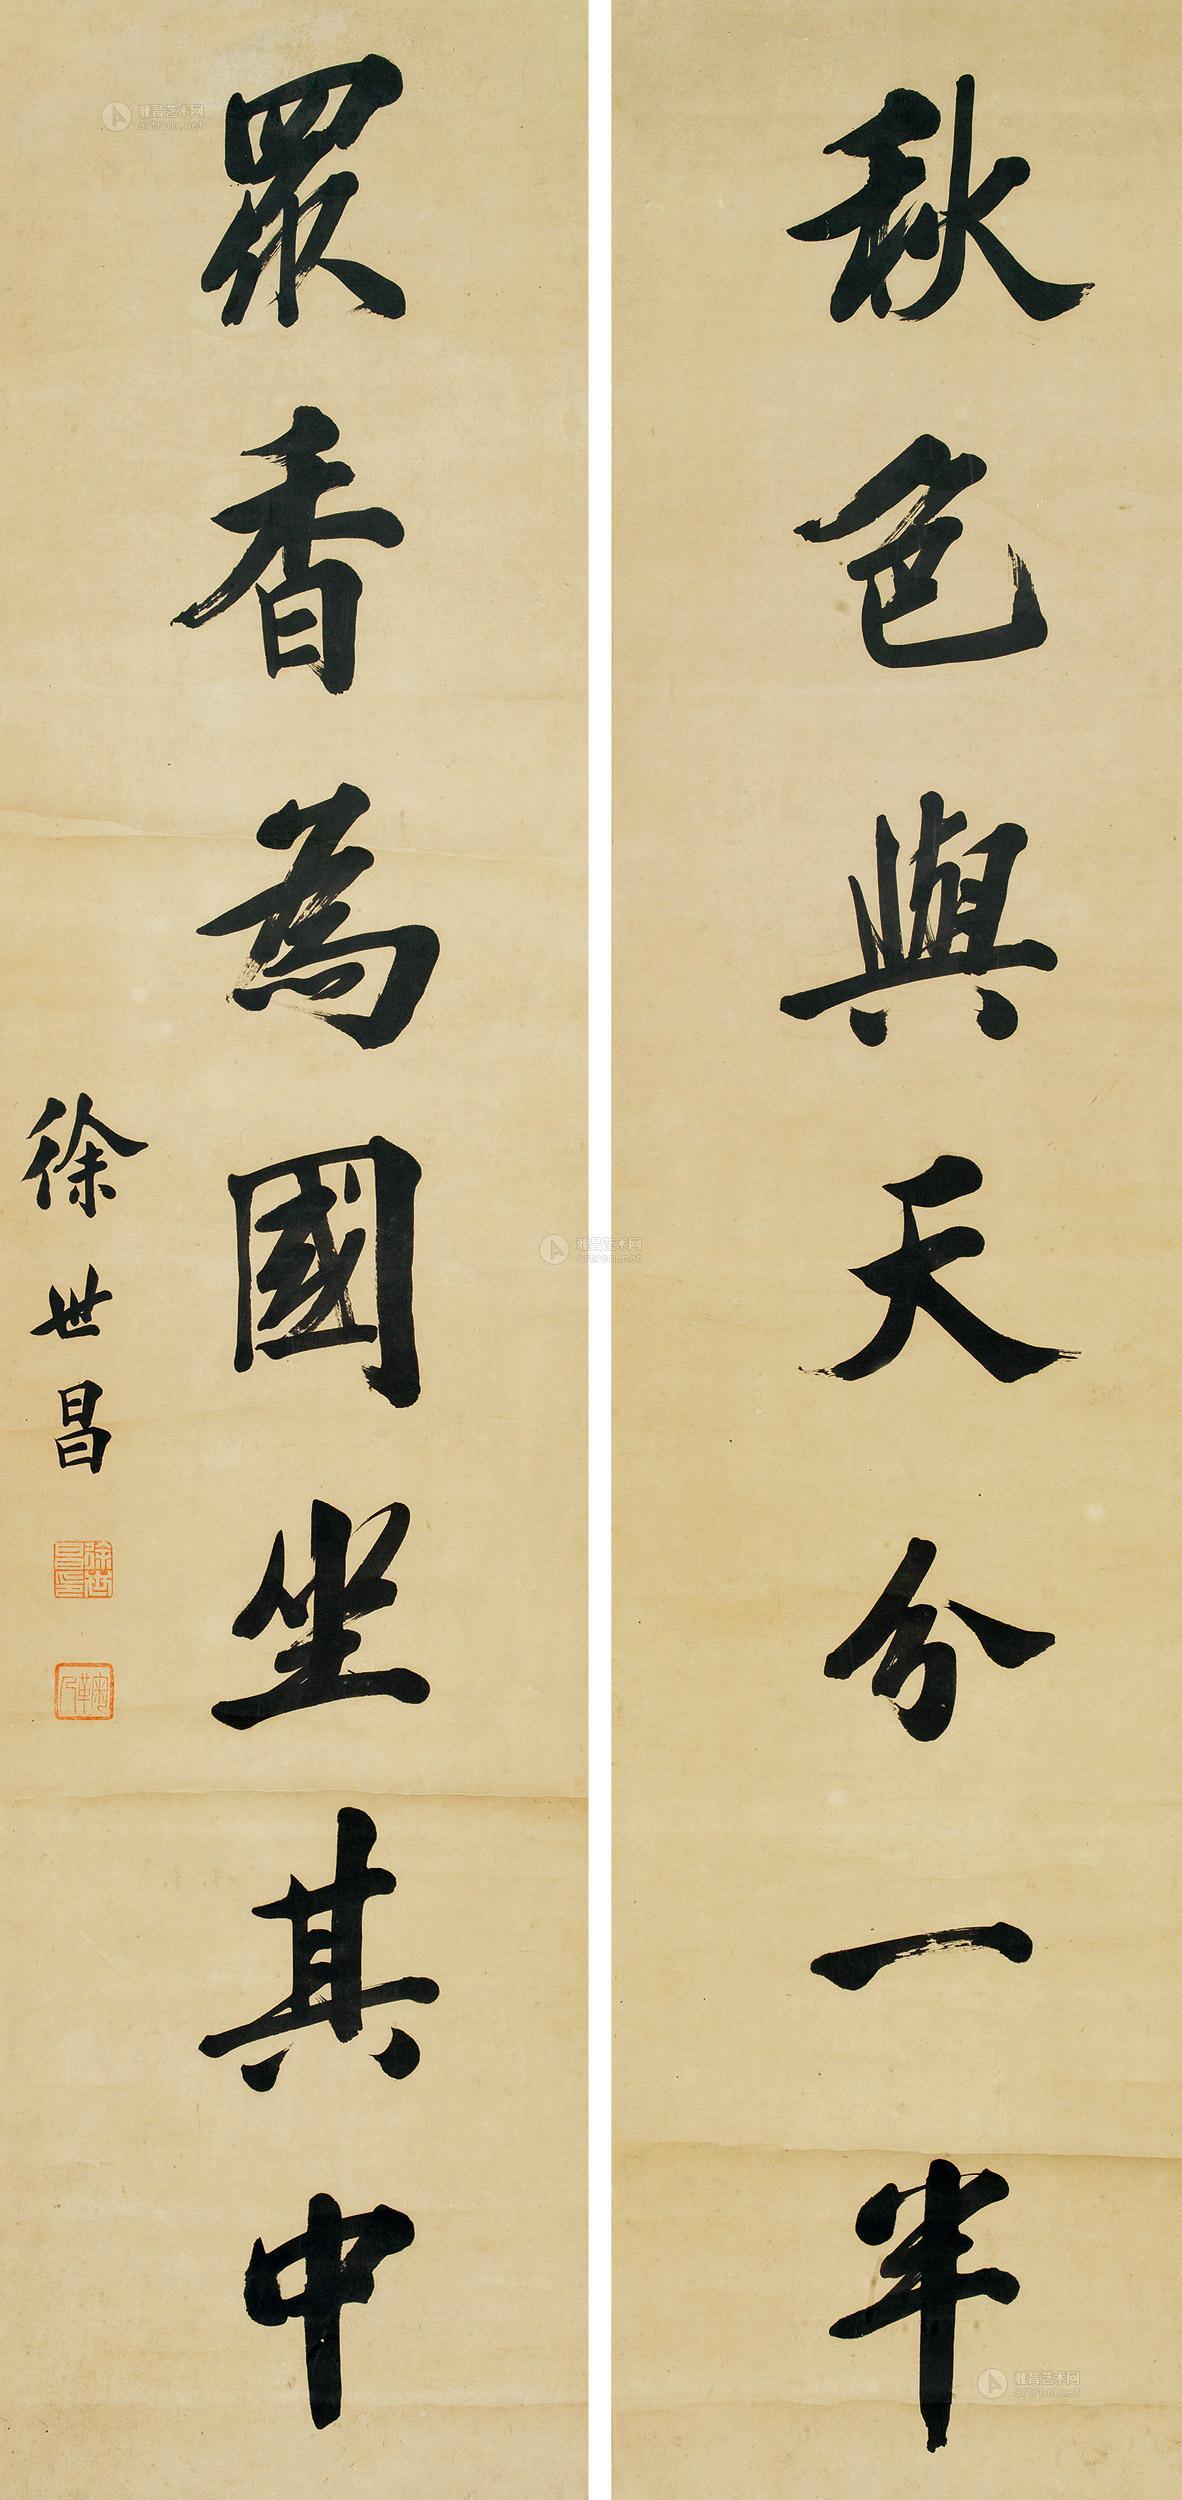 秋色與天分一半
眾香為國坐其中
徐世昌
徐世昌印
鞠人
雅昌艺术网
artron.net
雅昌艺术网
artron.net
雅昌艺术网
artron.net